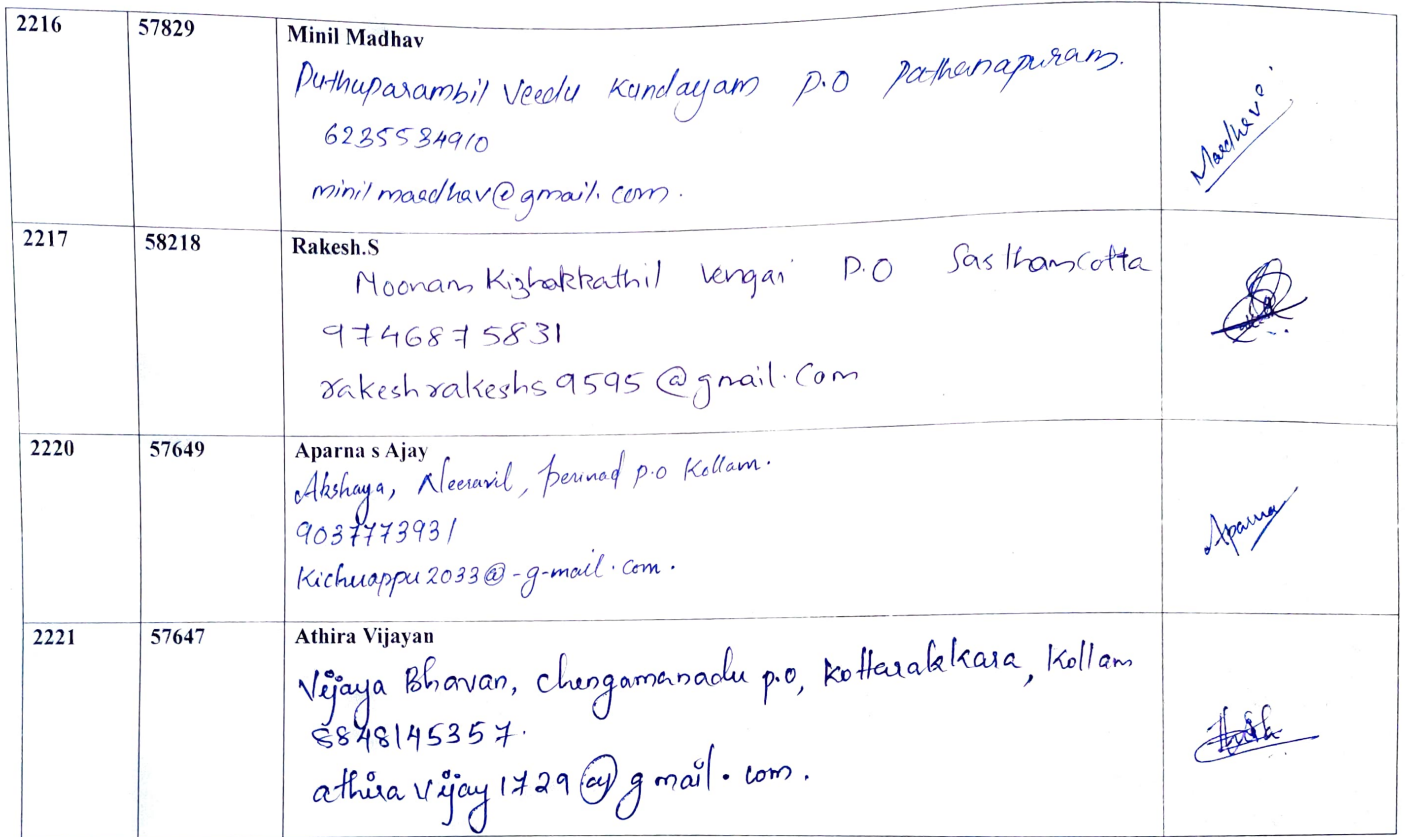 2216 57829 Minil Madhav
Puthuparambil Veedu Kundayam P.O Pathanapuram.
6235534910
minilmaadhav@gmail.com.
Maadhav
2217 58218 Rakesh.S
Moonam Kizhakkathil Vengai P.O Sasthamcotta
9746875831
rakeshrakeshs9595@gmail.com
2220 57649 Aparna s Ajay
Akshaya, Neeravil, perinad p.o Kollam.
9037773931
Kichuappu2033@-g-mail.com.
Aparna
2221 57647 Athira Vijayan
Vijaya Bhavan, chengamanadu p.o, kottarakkara, Kollam
8848145357.
athira vijay1729@gmail.com.